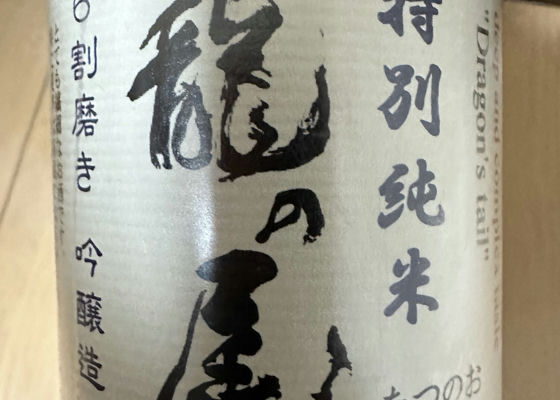 deep and complex
"Dragon's tail"
特別純米
たつのお
龍の尾
6割磨き 吟醸造